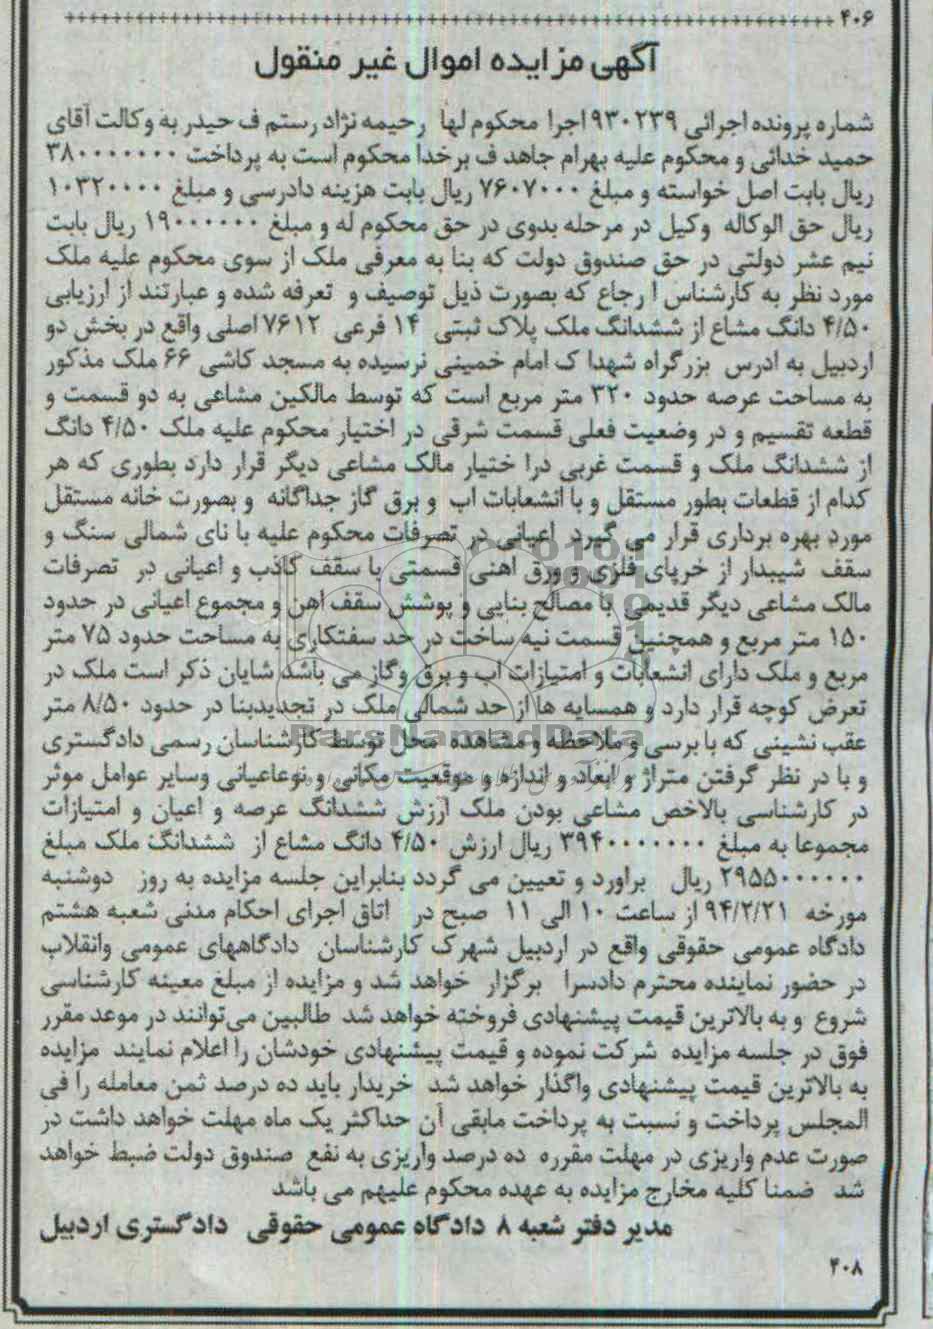 ۴۰۶
آگهی مزایده اموال غیر منقول
شماره پرونده اجرائی ۹۳۰۲۳۹ اجرا محکوم لها رحیمه نژاد رستم ف حیدر به وکالت آقای
حمید خدائی و محکوم علیه بهرام جاهد ف برخدا محکوم است به پرداخت ۳۸۰۰۰۰۰۰۰
ریال بابت اصل خواسته و مبلغ ۷۶۰۷۰۰۰ ریال بابت هزینه دادرسی و مبلغ ۱۰۳۲۰۰۰۰
ریال حق الوکاله وکیل در مرحله بدوی در حق محکوم له و مبلغ ۱۹۰۰۰۰۰۰ ریال بابت
نیم عشر دولتی در حق صندوق دولت که بنا به معرفی ملک از سوی محکوم علیه ملک
مورد نظر به کارشناس ا رجاع که بصورت ذیل توصیف و تعرفه شده و عبارتند از ارزیابی
۴/۵۰ دانگ مشاع از ششدانگ ملک پلاک ثبتی ۱۴ فرعی ۷۶۱۲ اصلی واقع در بخش دو
اردبیل به ادرس بزرگراه شهدا ک امام خمینی نرسیده به مسجد کاشی ۶۶ ملک مذکور
به مساحت عرصه حدود ۳۲۰ متر مربع است که توسط مالکین مشاعی به دو قسمت و
قطعه تقسیم و در وضعیت فعلی قسمت شرقی در اختیار محکوم علیه ملک ۴/۵۰ دانگ
از ششدانگ ملک و قسمت غربی درا ختیار مالک مشاعی دیگر قرار دارد بطوری که هر
کدام از قطعات بطور مستقل و با انشعابات اب و برق گاز جداگانه و بصورت خانه مستقل
مورد بهره برداری قرار می گیرد اعیانی در تصرفات محکوم علیه با نای شمالی سنگ و
سقف شیبدار از خرپای فلزی و ورق اهنی قسمتی با سقف کاذب و اعیانی در تصرفات
مالک مشاعی دیگر قدیمی با مصالح بنایی و پوشش سقف اهن و مجموع اعیانی در حدود
۱۵۰ متر مربع و همچنین قسمت نیه ساخت در حد سفتکاری به مساحت حدود ۷۵ متر
مربع و ملک دارای انشعابات و امتیازات اب و برق وگاز می باشد شایان ذکر است ملک در
تعرض کوچه قرار دارد و همسایه ها از حد شمالی ملک در تجدیدبنا در حدود ۸/۵۰ متر
عقب نشینی که با برسی و ملاحظه و مشاهده محل توسط کارشناسان رسمی دادگستری
و با در نظر گرفتن متراژ و ابعاد و اندازه و موقعیت مکانی و نوعاعیانی وسایر عوامل موثر
در کارشناسی بالاخص مشاعی بودن ملک ارزش ششدانگ عرصه و اعیان و امتیازات
مجموعا به مبلغ ۳۹۴۰۰۰۰۰۰۰ ریال ارزش ۴/۵۰ دانگ مشاع از ششدانگ ملک مبلغ
۲۹۵۵۰۰۰۰۰۰ ریال براورد و تعیین می گردد بنابراین جلسه مزایده به روز دوشنبه
مورخه ۹۴/۲/۲۱ از ساعت ۱۰ الی ۱۱ صبح در اتاق اجرای احکام مدنی شعبه هشتم
دادگاه عمومی حقوقی واقع در اردبیل شهرک کارشناسان دادگاههای عمومی وانقلاب
در حضور نماینده محترم دادسرا برگزار خواهد شد و مزایده از مبلغ معینه کارشناسی
شروع و به بالاترین قیمت پیشنهادی فروخته خواهد شد طالبین می‌توانند در موعد مقرر
فوق در جلسه مزایده شرکت نموده و قیمت پیشنهادی خودشان را اعلام نمایند مزایده
به بالاترین قیمت پیشنهادی واگذار خواهد شد خریدار باید ده درصد ثمن معامله را فی
المجلس پرداخت و نسبت به پرداخت مابقی آن حداکثر یک ماه مهلت خواهد داشت در
صورت عدم واریزی در مهلت مقرره ده درصد واریزی به نفع صندوق دولت ضبط خواهد
شد ضمنا کلیه مخارج مزایده به عهده محکوم علیهم می باشد
مدیر دفتر شعبه ۸ دادگاه عمومی حقوقی دادگستری اردبیل
۴۰۸
ParsNamadData